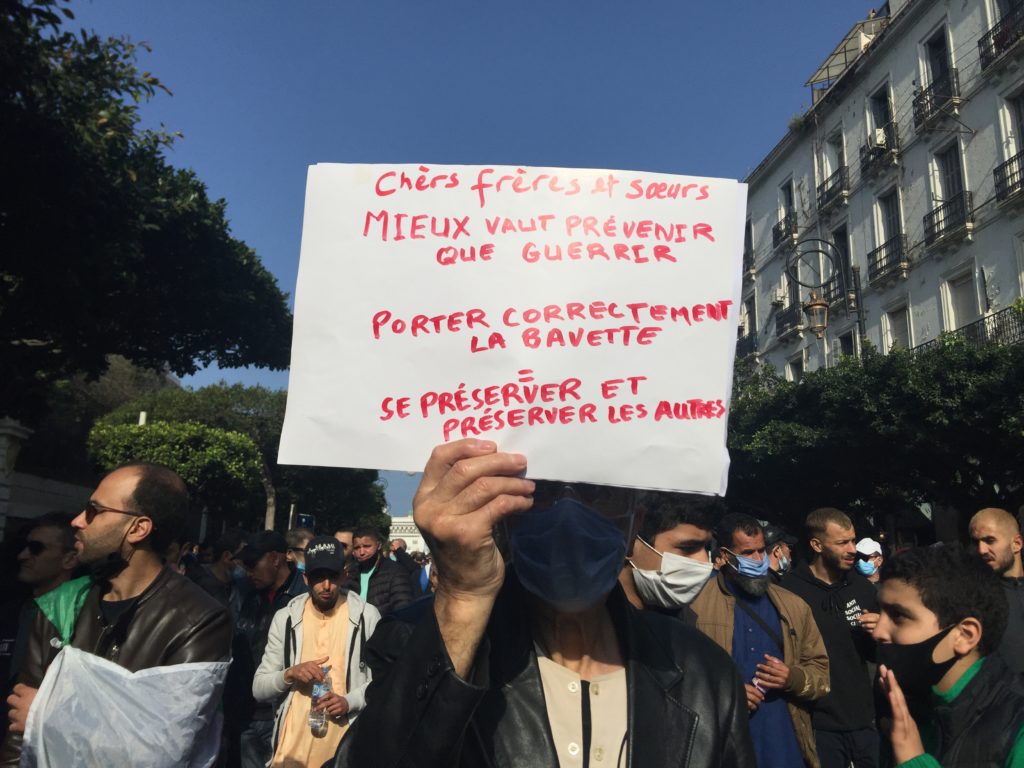 Chèrs frères et sœurs
MIEUX VAUT PRÉVENIR
QUE GUERRIR
PORTER CORRECTEMENT
LA BAVETTE
=
SE PRÉSERVER ET
PRÉSERVER LES AUTRES
ANTI
SOCIAL
SOCIAL